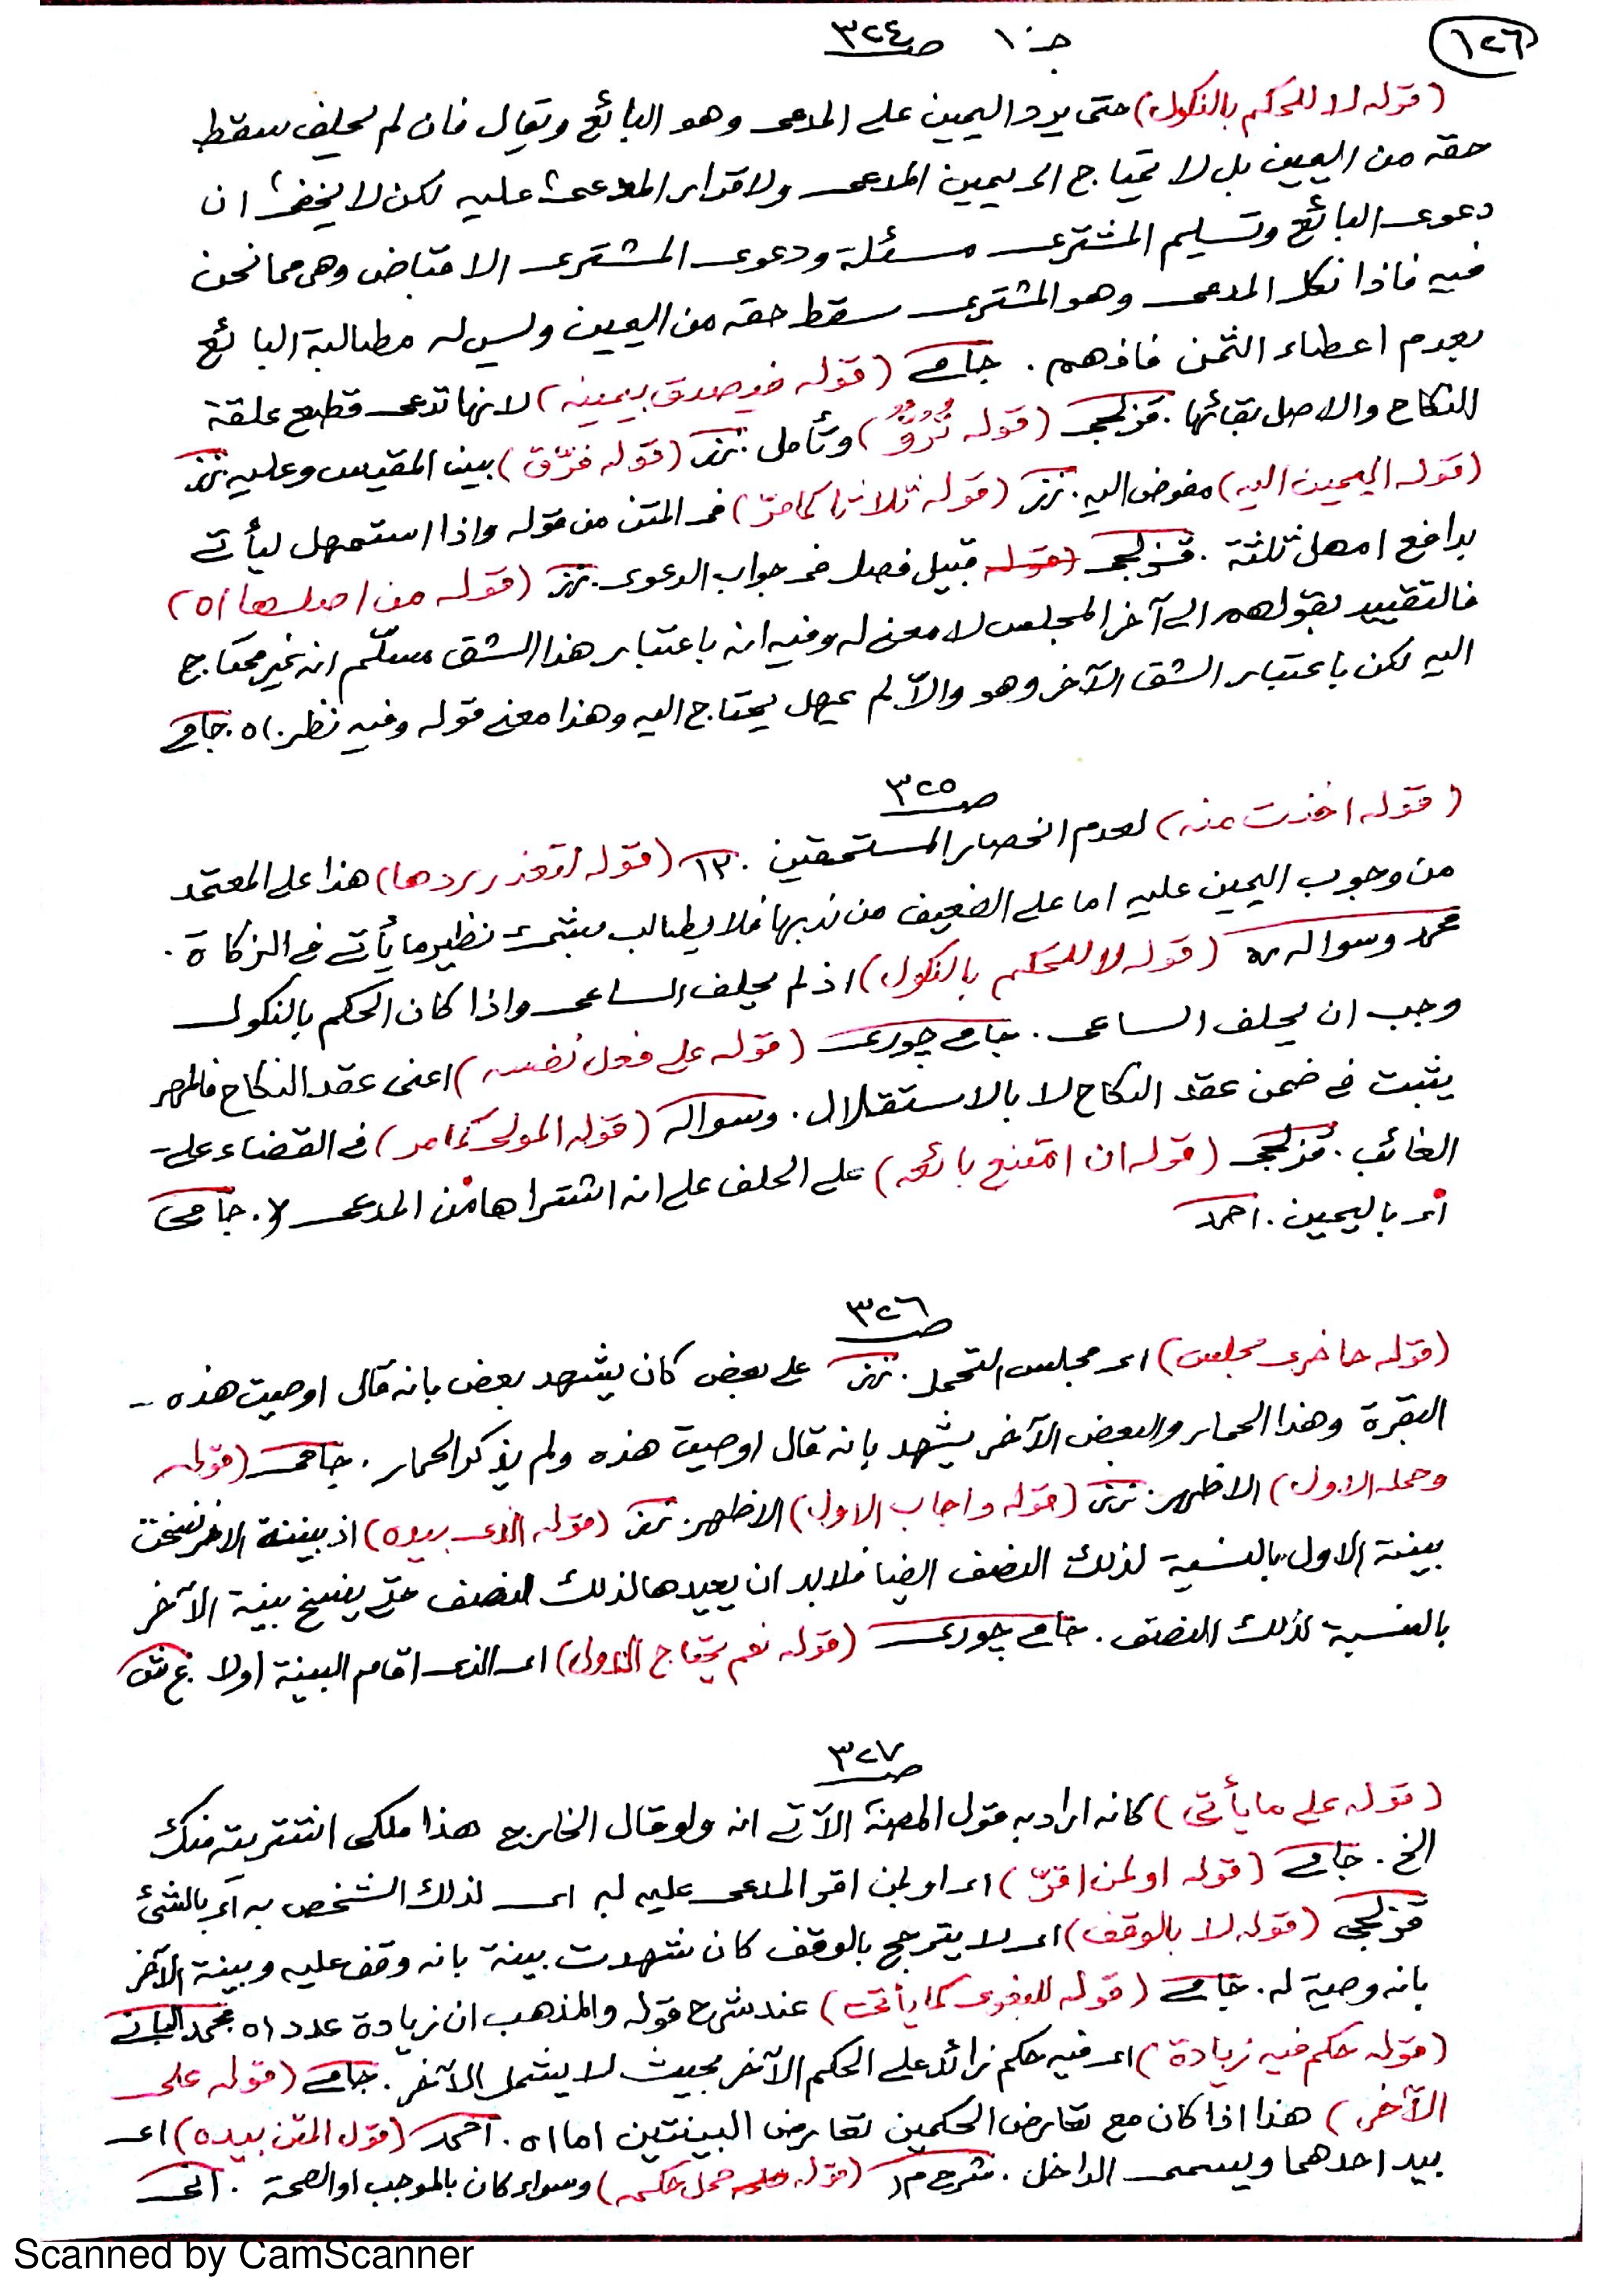 ١٢٦
جـ ١٠ صـ ٣٢٤
(قوله لا للحكم بالنكول) حتى يرد اليمين على المدعى وهو البائع ويقال فان لم يحلف سقط
حقه من اليمين بل لا تحتاج الى يمين المدعى ولاقرار المدعى عليه لكن لا يخفى ان
دعوى البائع وتسليم المشترى مسئلة ودعوى المشترى الاقباض وهى مما نحن
فيه فاذا نكل المدعى وهو المشترى سقط حقه من اليمين وليس له مطالبة البائع
بعدم اعطاء الثمن فافهم . جامى (قوله فيصدق بيمينه) لانها تدعى قطيع علقة
النكاح والاصل بقائها . قزلجى (قوله تردد) وتأمل . نزز (قوله فرّق) بين المقيس وعليه نزز
(قوله اليمين اليه) مفوض اليه . نزز (قوله ثلاثا كما مرّ) فى المتن من قوله واذا استمهل ليأتى
بدافع امهل ثلثة . قزلجى (قوله قبيل فصل فى جواب الدعوى . نزز (قوله من اصلها اه)
فالتقييد بقولهم الى آخر المجلس لا معنى له وفيه انه باعتبار هذا الشق مسلّم انه غير محتاج
اليه لكن باعتبار الشق الآخر وهو والاّ لم يمهل يحتاج اليه وهذا معنى قوله وفيه نظر . اه . جامى
صـ ٣٢٥
(قوله اخذت منه) لعدم انحصار المستحقين . ١٢ (قوله لتعذر ردها) هذا على المعتمد
من وجوب اليمين عليه اما على الضعيف من ندبها فلا يطالب بشئ نظير ما يأتى فى الزكاة .
محمد وسواله ره (قوله لا للحكم بالنكول) اذ لم يحلف الساعى واذا كان الحكم بالنكول
وجب ان يحلف الساعى . جامى چورى (قوله على فعل نفسه) اعنى عقد النكاح فالمهر
يثبت فى ضمن عقد النكاح لا بالاستقلال . وسواله (قوله المولى كما مر) فى القضاء على
الغائب . قزلجى (قوله ان امتنع بائعه) على الحلف على انه اشتراها من المدعى لا . جامى
اى باليمين . احمد
صـ ٣٢٦
(قوله حاضرى مجلس) اى مجلس التحمل . نزز على بعض كان يشهد بعض بانه قال اوصيت هذه
البقرة وهذا الحمار والبعض الآخر يشهد بانه قال اوصيت هذه ولم يذكر الحمار . جامى (قوله
وحمله الاول) الاظهر . نزز (قوله واجاب الاول) الاظهر . نزز (قوله الذى بيده) اذ بينة الاخر نسخت
بينة الاول بالنسبة لذلك النصف ايضا فلابد ان يعيدها لذلك النصف حتى ينسخ بينة الآخر
بالنسبة لذلك النصف . جامى چورى (قوله نعم يحتاج الاول) اى الذى اقام البينة اولا ع ش
صـ ٣٢٧
(قوله على ما يأتى) كانه اراد به قول المصنف الآتى انه ولو قال الخارج هذا ملكى اشتريته منك
الخ . جامى (قوله او لمن اقرّ) اى او لمن اقر المدعى عليه له اى لذلك الشخص به اى بالشئ
قزلجى (قوله لا بالوقف) اى لا يترجح بالوقف كان شهدت بينة بانه وقف عليه وبينة الآخر
بانه وصية له . جامى (قوله للبغوى كما يأتى) عند شرح قوله والمذهب ان زيادة عدد اه محمد البانى
(قوله حكم فيه زيادة) اى فيه حكم زائد على الحكم الآخر بحيث لا يشمل الآخر . جامى (قوله على
الآخر) هذا اذا كان مع تعارض الحكمين تعارض البينتين اما اه . احمد (قول المتن بيده) اى
بيد احدهما ويسمى الداخل . شرح م ر (قوله محل حكمه) وسواء كان بالموجب او الصحة . انى
Scanned by CamScanner